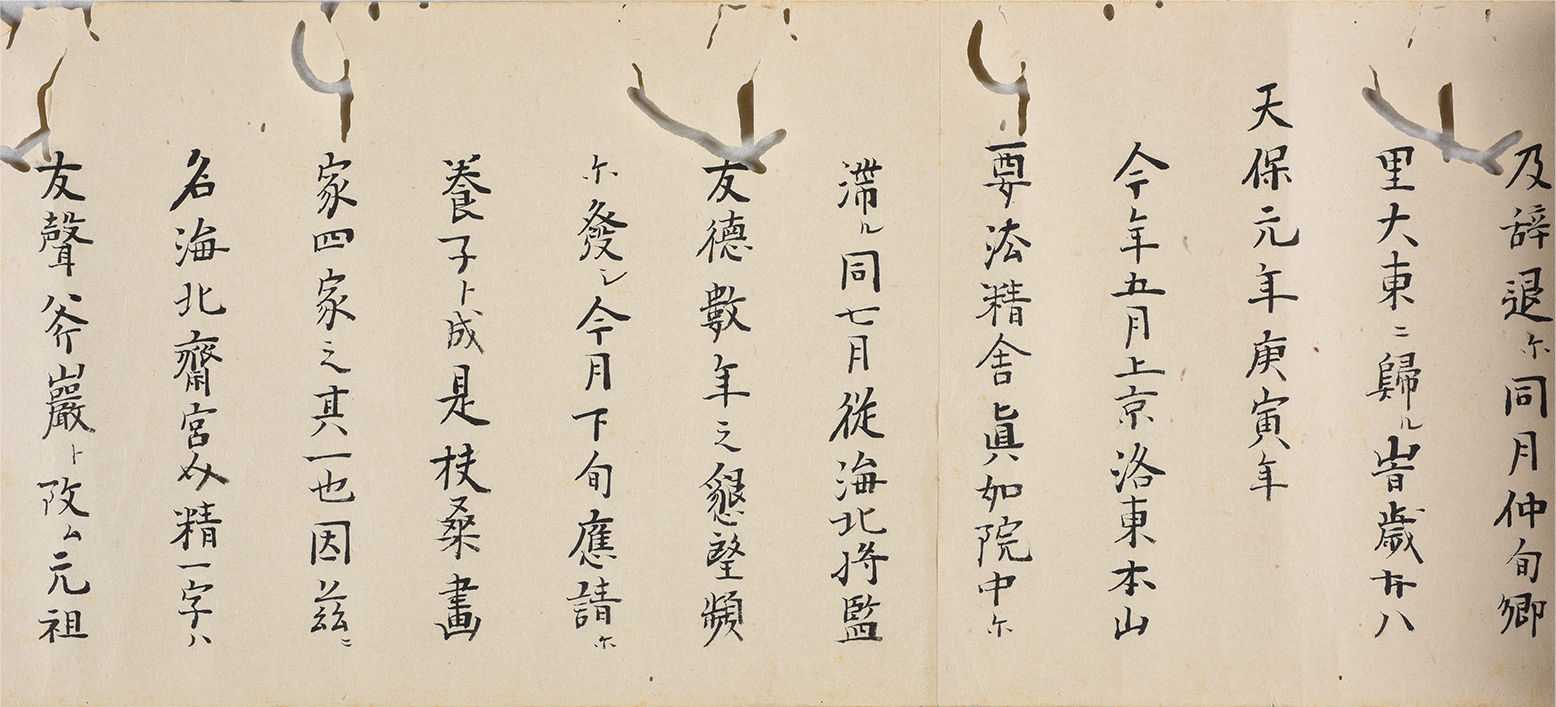 及辞退尓同月仲旬鄉
里大東ニ歸ル旹歳廿八
天保元年庚寅年
今年五月上京洛東本山
要法精舎眞如院中尓
滞ル同七月従海北将監
友德數年之懇望頻
尓發シ今月下旬應請尓
養子ト成是扶桑畫
家四家之其一也因茲ニ
名海北齋宮精一字ハ
友聲斧巖ト改ム元祖